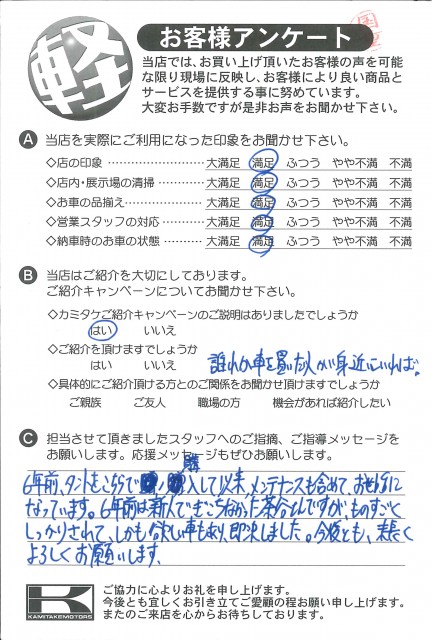 軽
お客様アンケート
当店では、お買い上げ頂いたお客様の声を可能
な限り現場に反映し、お客様により良い商品と
サービスを提供する事に努めています。
大変お手数ですが是非お声をお聞かせ下さい。
A 当店を実際にご利用になった印象をお聞かせ下さい。
◇店の印象 ………………… 大満足 満足 ふつう やや不満 不満
◇店内・展示場の清掃 ………… 大満足 満足 ふつう やや不満 不満
◇お車の品揃え ……………… 大満足 満足 ふつう やや不満 不満
◇営業スタッフの対応 ………… 大満足 満足 ふつう やや不満 不満
◇納車時のお車の状態 ………… 大満足 満足 ふつう やや不満 不満
B 当店はご紹介を大切にしております。
ご紹介キャンペーンについてお聞かせ下さい。
◇カミタケご紹介キャンペーンのご説明はありましたでしょうか
はい いいえ
◇ご紹介を頂けますでしょうか
はい いいえ 誰れか車を買いたい人が身近にいれば。
◇具体的にご紹介頂ける方とのご関係をお聞かせ頂けますでしょうか
ご親族 ご友人 職場の方 機会があれば紹介したい
C 担当させて頂きましたスタッフへのご指摘、ご指導メッセージを
お願いします。応援メッセージもぜひお願いします。
6年前、タントをこちらで購入して以来、メンテナンスも含めて、お世話に
なっています。6年前は新人でもこちなかった茶谷くんですが、ものすごく
しっかりされて、しかも欲しい車もあり、即決しました。今後とも、末長く
よろしくお願いします。
K
KAMITAKEMOTORS
ご協力に心よりお礼を申し上げます。
今後とも宜しくお引き立てご愛顧の程お願い申し上げます。
またのご来店を心からお待ちしております。